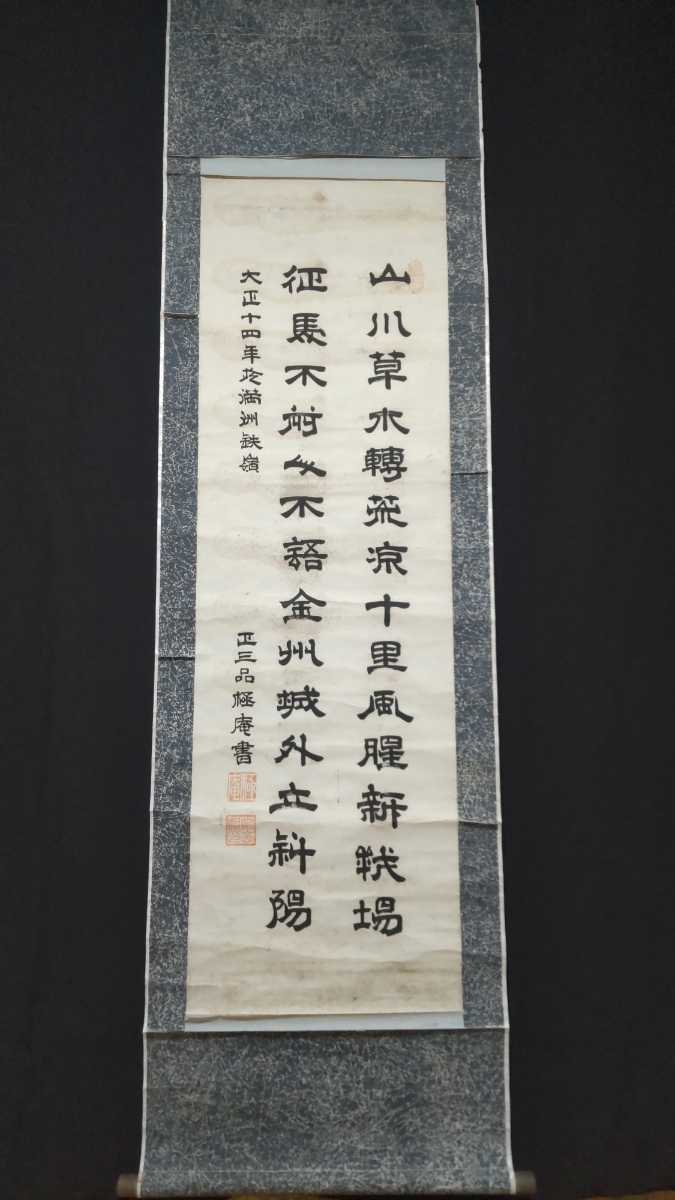 山川草木轉荒凉十里風腥新戦場
征馬不前人不語金州城外立斜陽
大正十四年於満洲鉄嶺
正三品極庵書